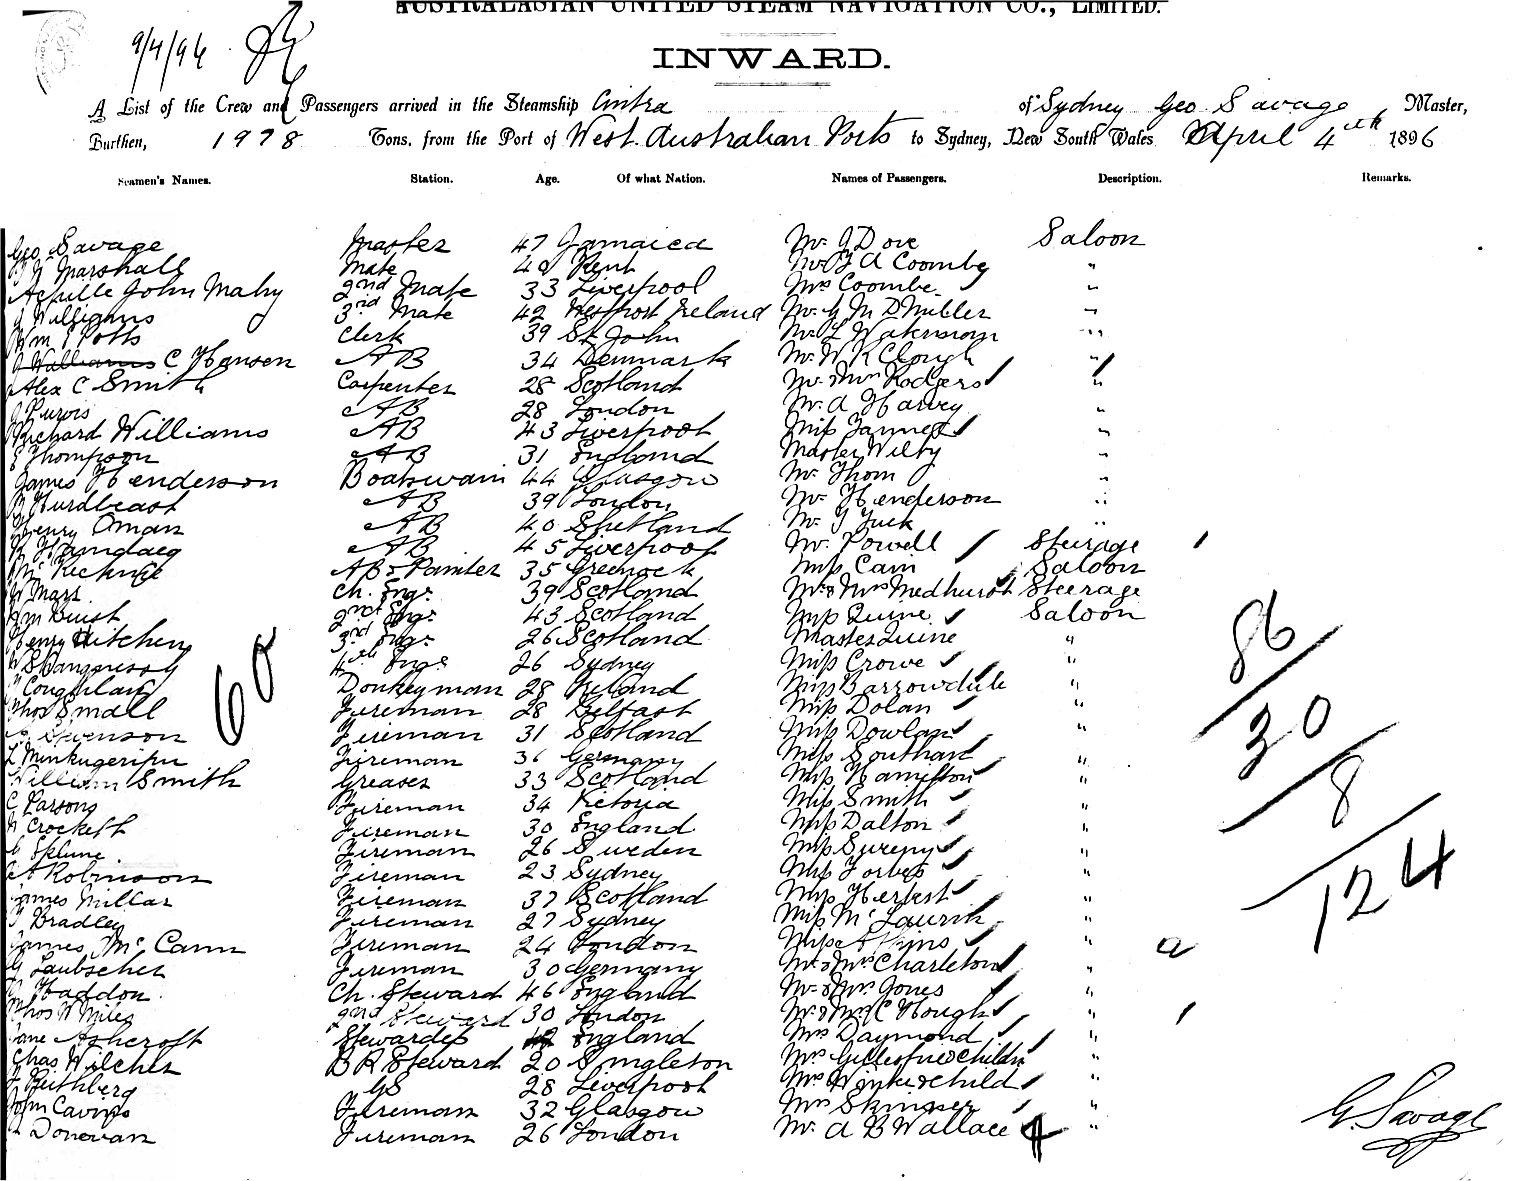 AUSTRALASIAN UNITED STEAM NAVIGATION CO., LIMITED.
9/4/96
INWARD.
A List of the Crew and Passengers arrived in the Steamship Cintra of Sydney Geo Savage Master,
Burthen, 1978 Tons, from the Port of West Australian Ports to Sydney, New South Wales April 4th 1896
Seamen's Names. Station. Age. Of what Nation. Names of Passengers. Description. Remarks.
Geo Savage Master 47 Jamaica Mr J Dove Saloon
Marshall Mate 40 Kent Mr F A Coombe "
Achille John Mahy 2nd Mate 33 Liverpool Mrs Coombe "
J Williams 3rd Mate 42 Westport Ireland Mr G M D Miller "
Wm Potts Clerk 39 St John Mr L Wakeman "
J Williams C Hansen AB 34 Denmark Mr W K Clough "
Alex C Smith Carpenter 28 Scotland Mr & Mrs Rodgers "
J Purvis AB 28 London Mr A Harvey "
Richard Williams AB 43 Liverpool Miss "
E Thompson AB 31 England Master Wilby "
James Henderson Boatswain 44 Glasgow Mr Thom "
Hurdbeast AB 39 London Mr Henderson "
Henry Oman AB 40 Shetland Mr Tuck "
AB 45 Liverpool Mr Powell Steerage
Mc AB & Painter 35 Greenock Miss Cain Saloon
Marr Ch. Engr 39 Scotland Mr & Mrs Medhurst Steerage
Wm Buist 2nd Engr 43 Scotland Miss Quine Saloon
Henry Aitchen 3rd Engr 26 Scotland Master Quine "
4th Engr 26 Sydney Miss Crowe "
Coughlan Donkeyman 28 Ireland Miss Barrowdale "
Thos Small Fireman 28 Belfast Miss Dolan "
Stevenson Fireman 31 Scotland Miss Dowlan "
Fireman 36 Germany Miss Southan "
William Smith Greaser 33 Scotland Miss Hamilton "
C Parsons Fireman 34 Victoria Miss Smith "
Crockett Fireman 30 England Miss Dalton "
Fireman 26 Sweden Miss "
A Robinson Fireman 23 Sydney Miss Forbes "
James Millar Fireman 37 Scotland Miss Herbert "
T Bradley Fireman 27 Sydney Miss McLaurin "
James McCann Fireman 24 London Miss "
G Laubscher Fireman 30 Germany Mr & Mrs Charleton "
Haddon Ch. Steward 46 England Mr & Mrs Jones "
Thos W Miles 2nd Steward 30 London Mr & Mrs C Hough "
Jane Ashcroft Stewardess 42 England Mrs Daymond "
Chas Wilcher BR Steward 20 Singleton Mrs "
J Ruthberg GS 28 Liverpool Mrs & child "
John Fireman 32 Glasgow Mrs Skinner "
Donovan Fireman 26 London Mr A B Wallace "
60
86
30
8
124
G. Savage